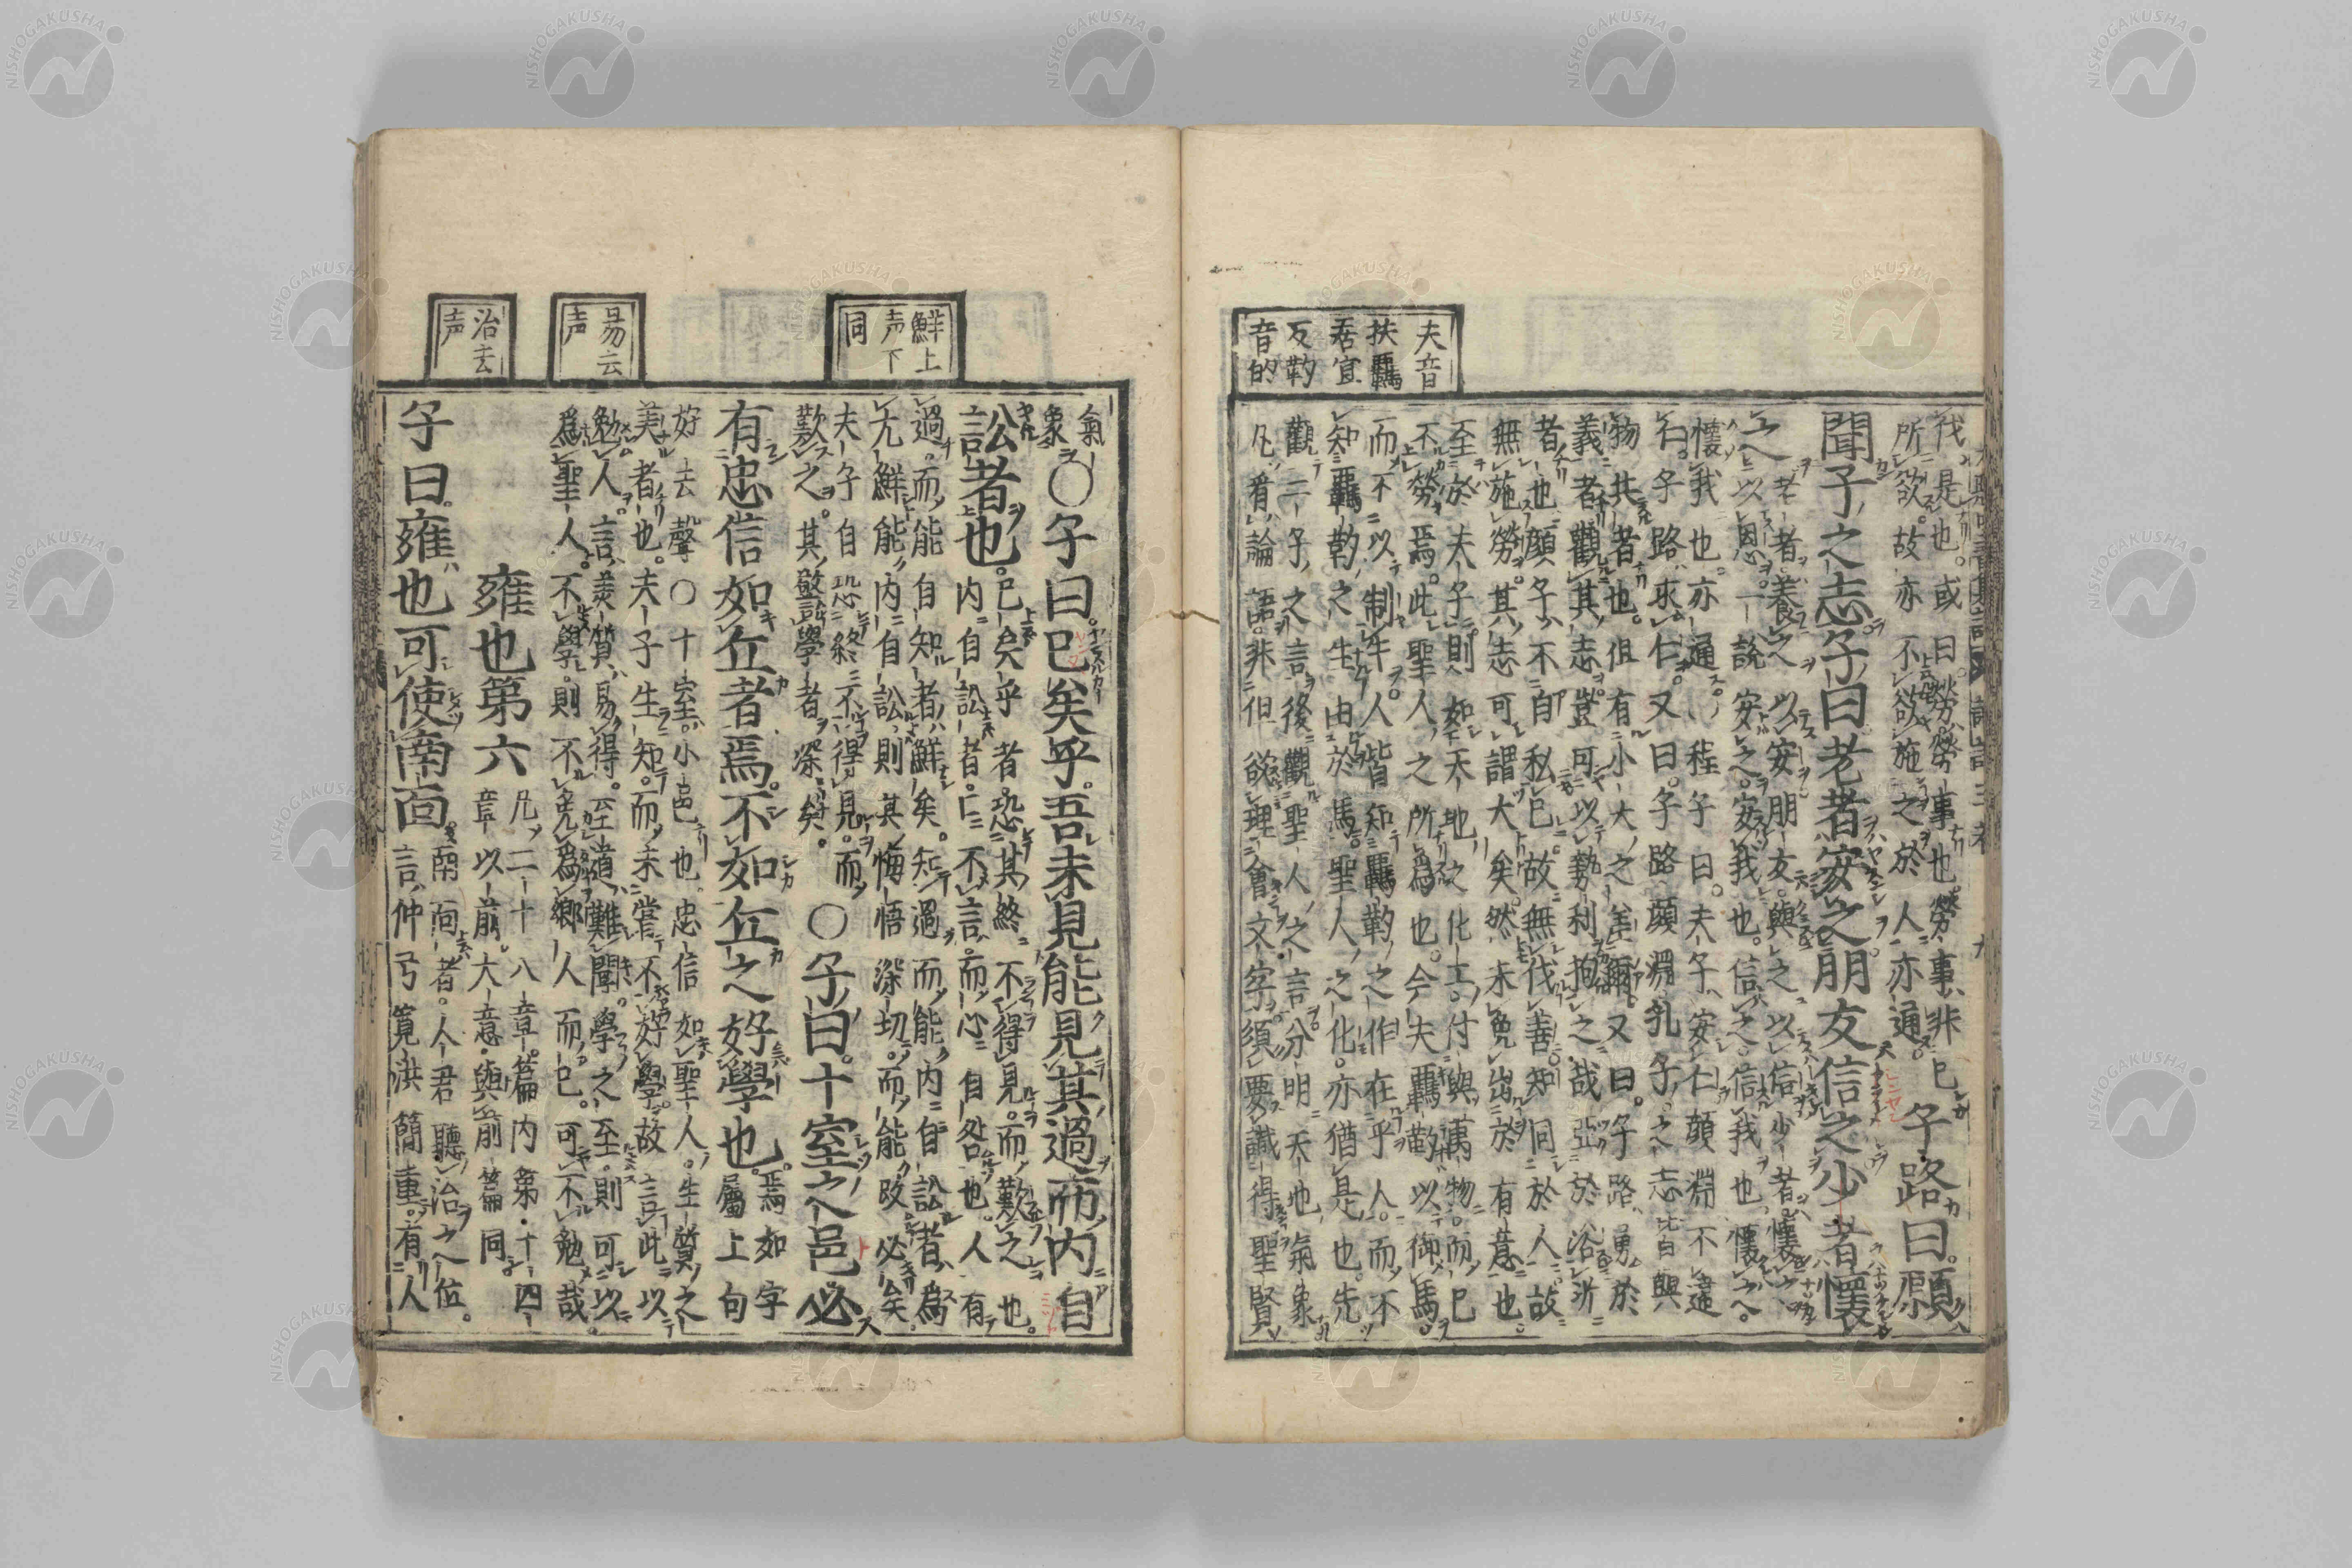 夫音
扶羈
居宜
反靮
音的
伐是也。或曰。勞勞事也勞事非己
所欲。故亦不欲施之於人亦通。
子路曰。願
聞子之志子曰老者安之。朋友信之少者懷
之老者養之以安朋友與之以信少者懷
之以恩。一說安之。安我也。信之。信我也。懷之。
懷我也。亦通。○程子曰。夫子安仁顏淵不違
仁。子路求仁。又曰。子路顏淵孔子之志皆與
物共者也。但有小大之差爾。又曰。子路勇於
義者觀其志。豈可以勢利拘之哉亞於浴沂
者也顏子不自私己。故無伐善。知同於人。故
無施勞。其志可謂大矣。然未免出於有意也
至於夫子則如天地之化工。付與萬物。而己
不勞焉。此聖人之所爲也。今夫羈靮以御馬。
而不以制牛。人皆知羈靮之作在乎人。而不
知羈靮之生由於馬。聖人之化。亦猶是也。先
觀二子之言後觀聖人之言。分明天地氣象
凡看論語。非但欲理會文字。須要識得聖賢
鮮上
声下
同
易去
声
治去
声
氣
象
○子曰。已矣乎。吾未見能見其過而内自
訟者也。
已矣乎者恐其終不得見。而歎之也。
内自訟者。口不言。而心自咎也。人有
過。而能自知者鮮矣。知過而能内自訟者爲
尤鮮能内自訟則其悔悟深切。而能改必矣。
夫子自恐終不得見。而
歎之。其警學者深矣。
○子曰。十室之邑必
有忠信如丘者焉。不如丘之好學也。
焉如字
屬上句
好去聲○十室。小邑也。忠信如聖人。生質之
美者也。夫子生知。而未嘗不好學。故言此以
勉人。言美質易得。至道難聞。學之至。則可以
爲聖人。不學。則不免爲鄉人而已。可不勉哉。
雍也第六
凡二十八章。篇内第十四
章以前。大意與前篇同
子曰。雍也可使南面。
南面者。人君聽治之位。
言仲弓寛洪簡重。有人